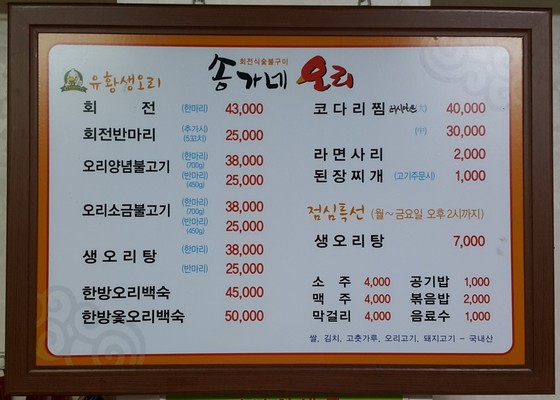 회전식숯불구이
송가네 오리
유황생오리
회 전 (한마리) 43,000
회전반마리 (추가시) (5꼬치) 25,000
오리양념불고기 (한마리) (700g) 38,000
(반마리) (450g) 25,000
오리소금불고기 (한마리) (700g) 38,000
(반마리) (450g) 25,000
생오리탕 (한마리) 38,000
(반마리) 25,000
한방오리백숙 45,000
한방옻오리백숙 50,000
코다리찜 (大) 40,000
(中) 30,000
라면사리 2,000
된장찌개 (고기주문시) 1,000
점심특선 (월~금요일 오후2시까지)
생오리탕 7,000
소 주 4,000 공기밥 1,000
맥 주 4,000 볶음밥 2,000
막걸리 4,000 음료수 1,000
쌀, 김치, 고춧가루, 오리고기, 돼지고기 - 국내산